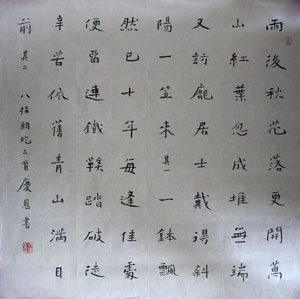 雨後秋花落更開萬
山紅葉忽成堆無端
又訪龐居士戴得斜
陽一笠來其一一鉢飄
然已十年每逢佳處
便留連鐵鞋踏破徒
辛苦依舊青山滿目
前其二八指頭陀二首慶恩書